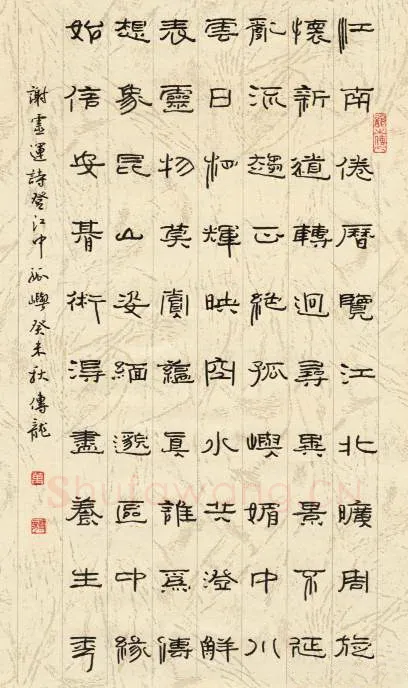 江南倦曆覽江北曠周旋
懷新道轉迥尋異景不延
亂流趨正絕孤嶼媚中川
雲日相輝映空水共澄鮮
表靈物莫賞蘊真誰爲傳
想象昆山姿緬邈區中緣
始信安期術得盡養生年
謝靈運詩登江中孤嶼癸未秋傳龍
Shufawang.CN